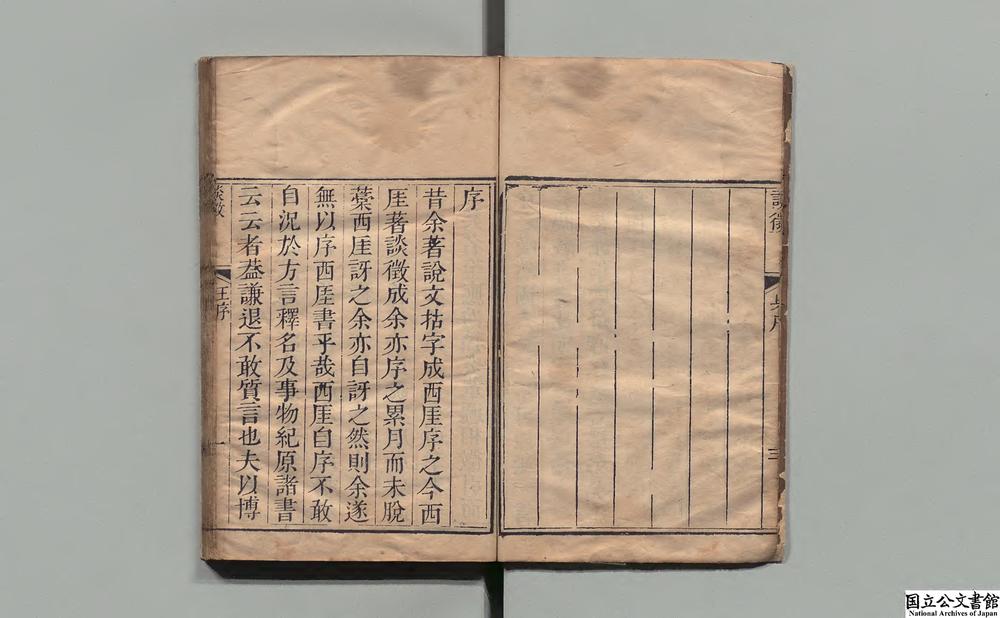 談徵
三
序
昔余著說文拈字成西厓序之今西
厓著談徵成余亦序之累月而未脫
藁西厓訝之余亦自訝之然則余遂
無以序西厓書乎哉西厓自序不敢
自況於方言釋名及事物紀原諸書
云云者葢謙退不敢質言也夫以博
談徵
王序
一
国立公文書館
National Archives of Japan